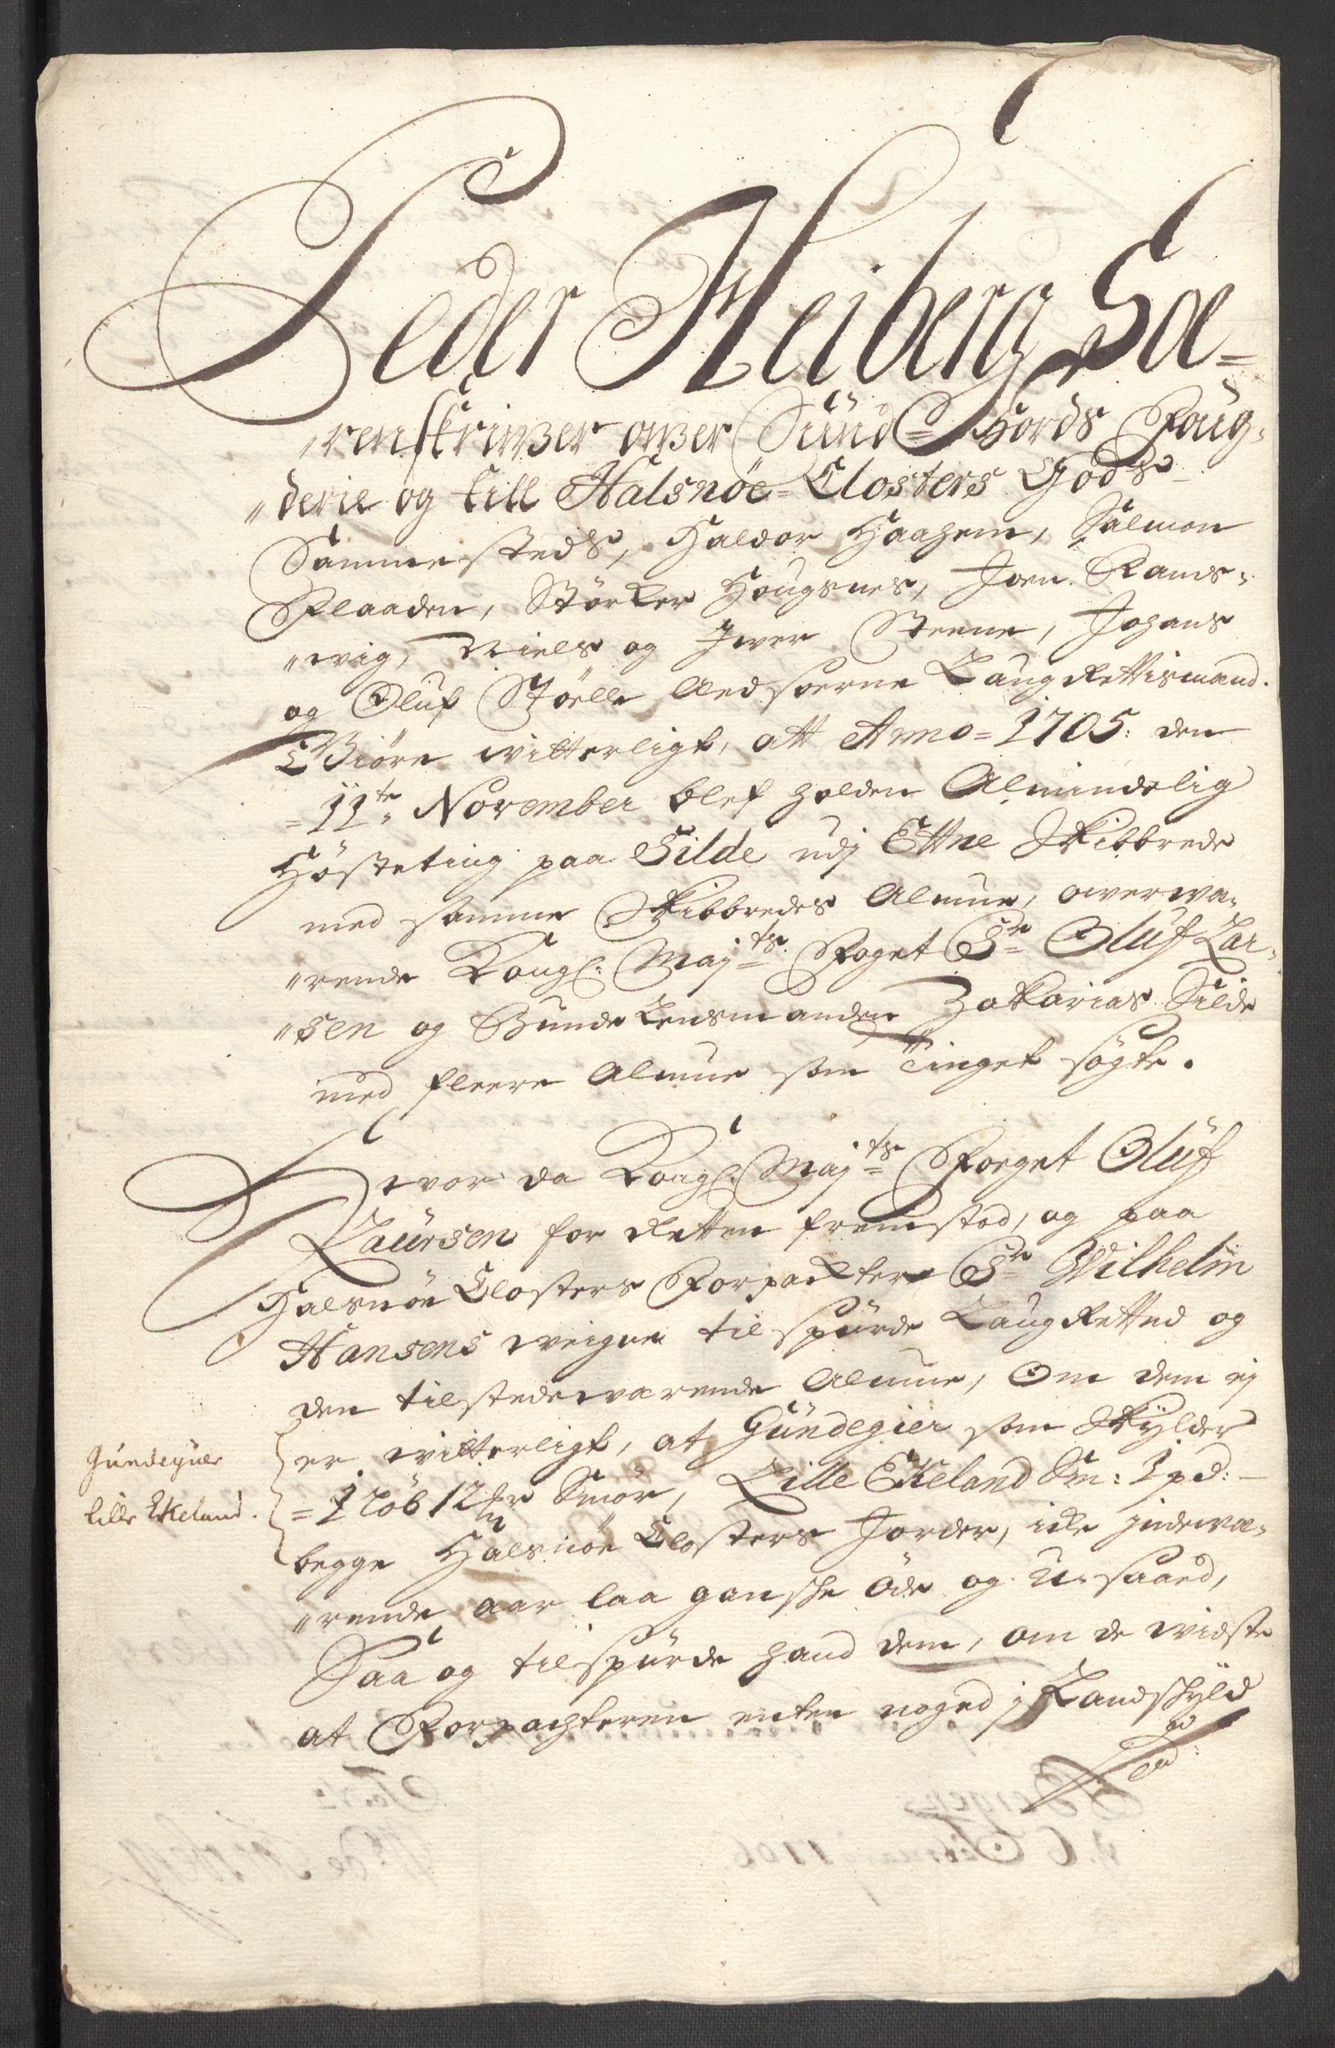 Peder Heiberg So-
"renskriwer ower Sund-Hords Foug-
"derie og till Halsnöe-Closters Gods
Sammesteds, Haldor Haaheim, Salmon
Flaaden, Størker Hougsnes, Joen Rams-
"wig, Niels og Iwer Steene, Johans
og Oluf Støelle Aedsoerne Laug Rettismænd.
Giøre witterligt, att Anno=1705: den
=11te November blef holden Almindelig
Høsteting paa Silde udj Ettne Skibbrede
med samme Skibbredes Almue, owerwæ-
"rende Kongl: Maj:ts Foget Sr Oluf Lar-
"sen og Bunde Lensmanden Zakarias Silde
med fleere Almue som Tinget søgte.
Hwor da Kongl: Maj:ts Foeget Oluf
Laursen for Retten fremstod, og paa
Halsnöe Closters Forpackter Sr Wilhelm
Hansens weigne tilspurde Laug Retted og
den tilstedewærende Almue, Om dem ej
er witterligt, at Gundegier som Skylder
=1 Løb 12 mr Smör, Lille Ekeland Sm: 1 pd:
begge Halsnöe Closters Jorder, icke indewæ-
"rende aar laa gansche öde og U-saaed,
Saa og tilspurde hand dem, om de widste
at Forpachteren enten noged j Landschyld
Gundegier
Lille Ekeland.